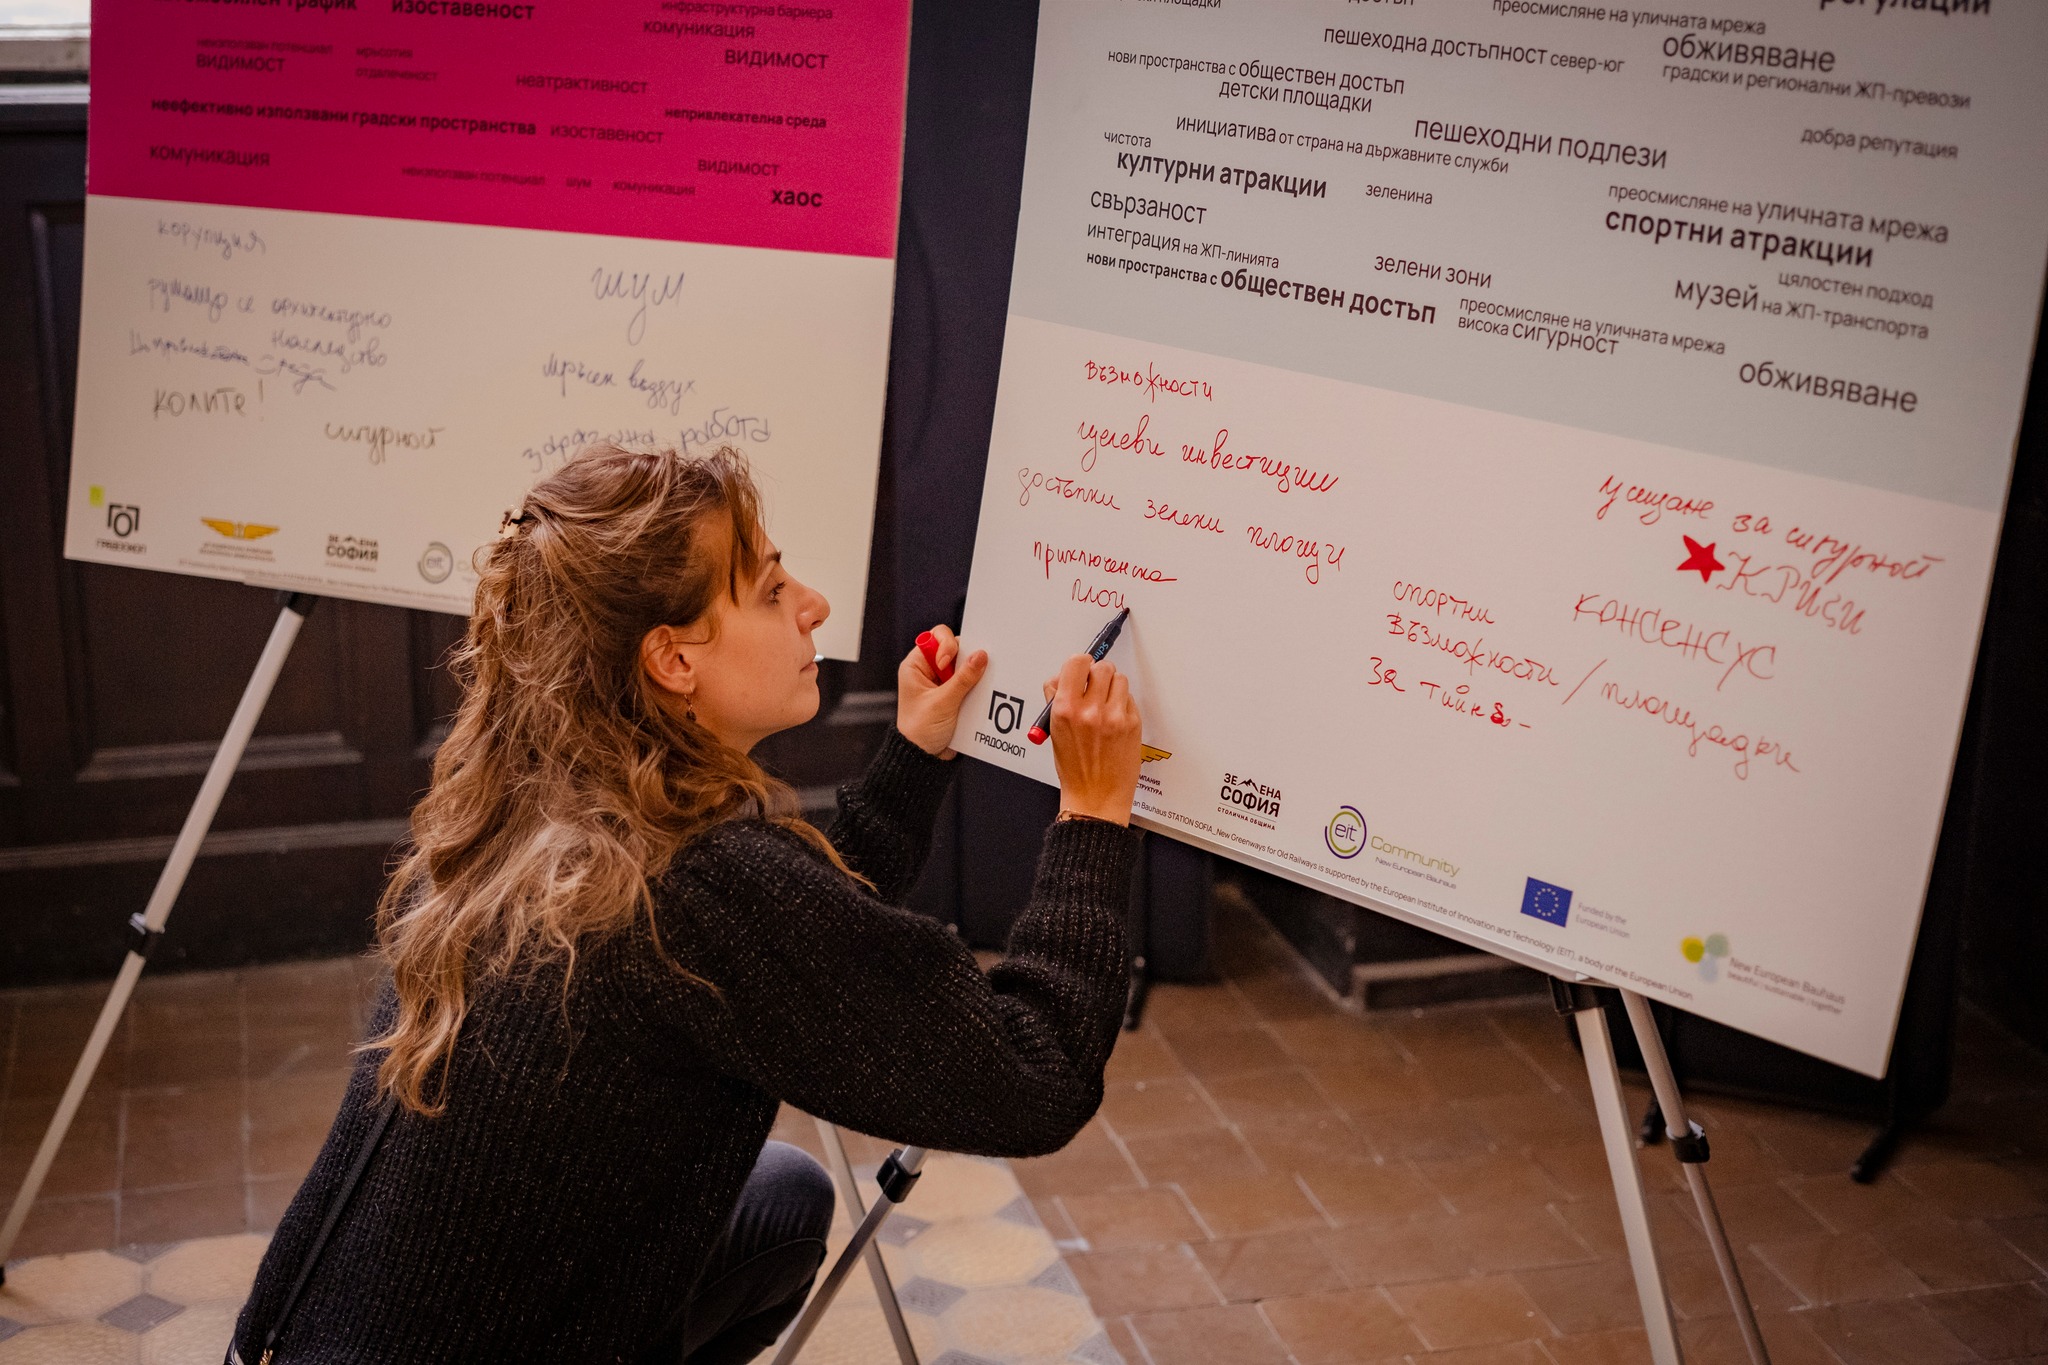 изоставеност
инфраструктурна бариера
комуникация
неизползван потенциал
мръсотия
видимост
видимост
отдалеченост
неатрактивност
неефективно използвани градски пространства
изоставеност
непривлекателна среда
комуникация
видимост
неизползван потенциал
шум
комуникация
хаос
корупция
шум
мръсен въздух
колите!
сигурност
работа
ГРАДОСКОП
ЗЕЛЕНА
СОФИЯ
eit
преосмисляне на уличната мрежа
регулации
пешеходна достъпност север-юг
обживяване
градски и регионални ЖП-превози
нови пространства с обществен достъп
детски площадки
инициатива от страна на държавните служби
пешеходни подлези
добра репутация
чистота
културни атракции
зеленина
преосмисляне на уличната мрежа
спортни атракции
свързаност
интеграция на ЖП-линията
зелени зони
цялостен подход
музей на ЖП-транспорта
нови пространства с обществен достъп
преосмисляне на уличната мрежа
висока сигурност
обживяване
възможности
целеви инвестиции
достъпни зелени площи
усещане за сигурност
КРИСИ
приключенска
площ
спортни
възможности / площадки
за тийн
консенсус
ГРАДОСКОП
ЗЕЛЕНА
СОФИЯ
СТОЛИЧНА ОБЩИНА
eit Community
New European Bauhaus
Funded by the
European Union
New European Bauhaus
beautiful | sustainable | together
an Bauhaus STATION SOFIA_New Greenways for Old Railways is supported by the European Institute of Innovation and Technology (EIT), a body of the European Union